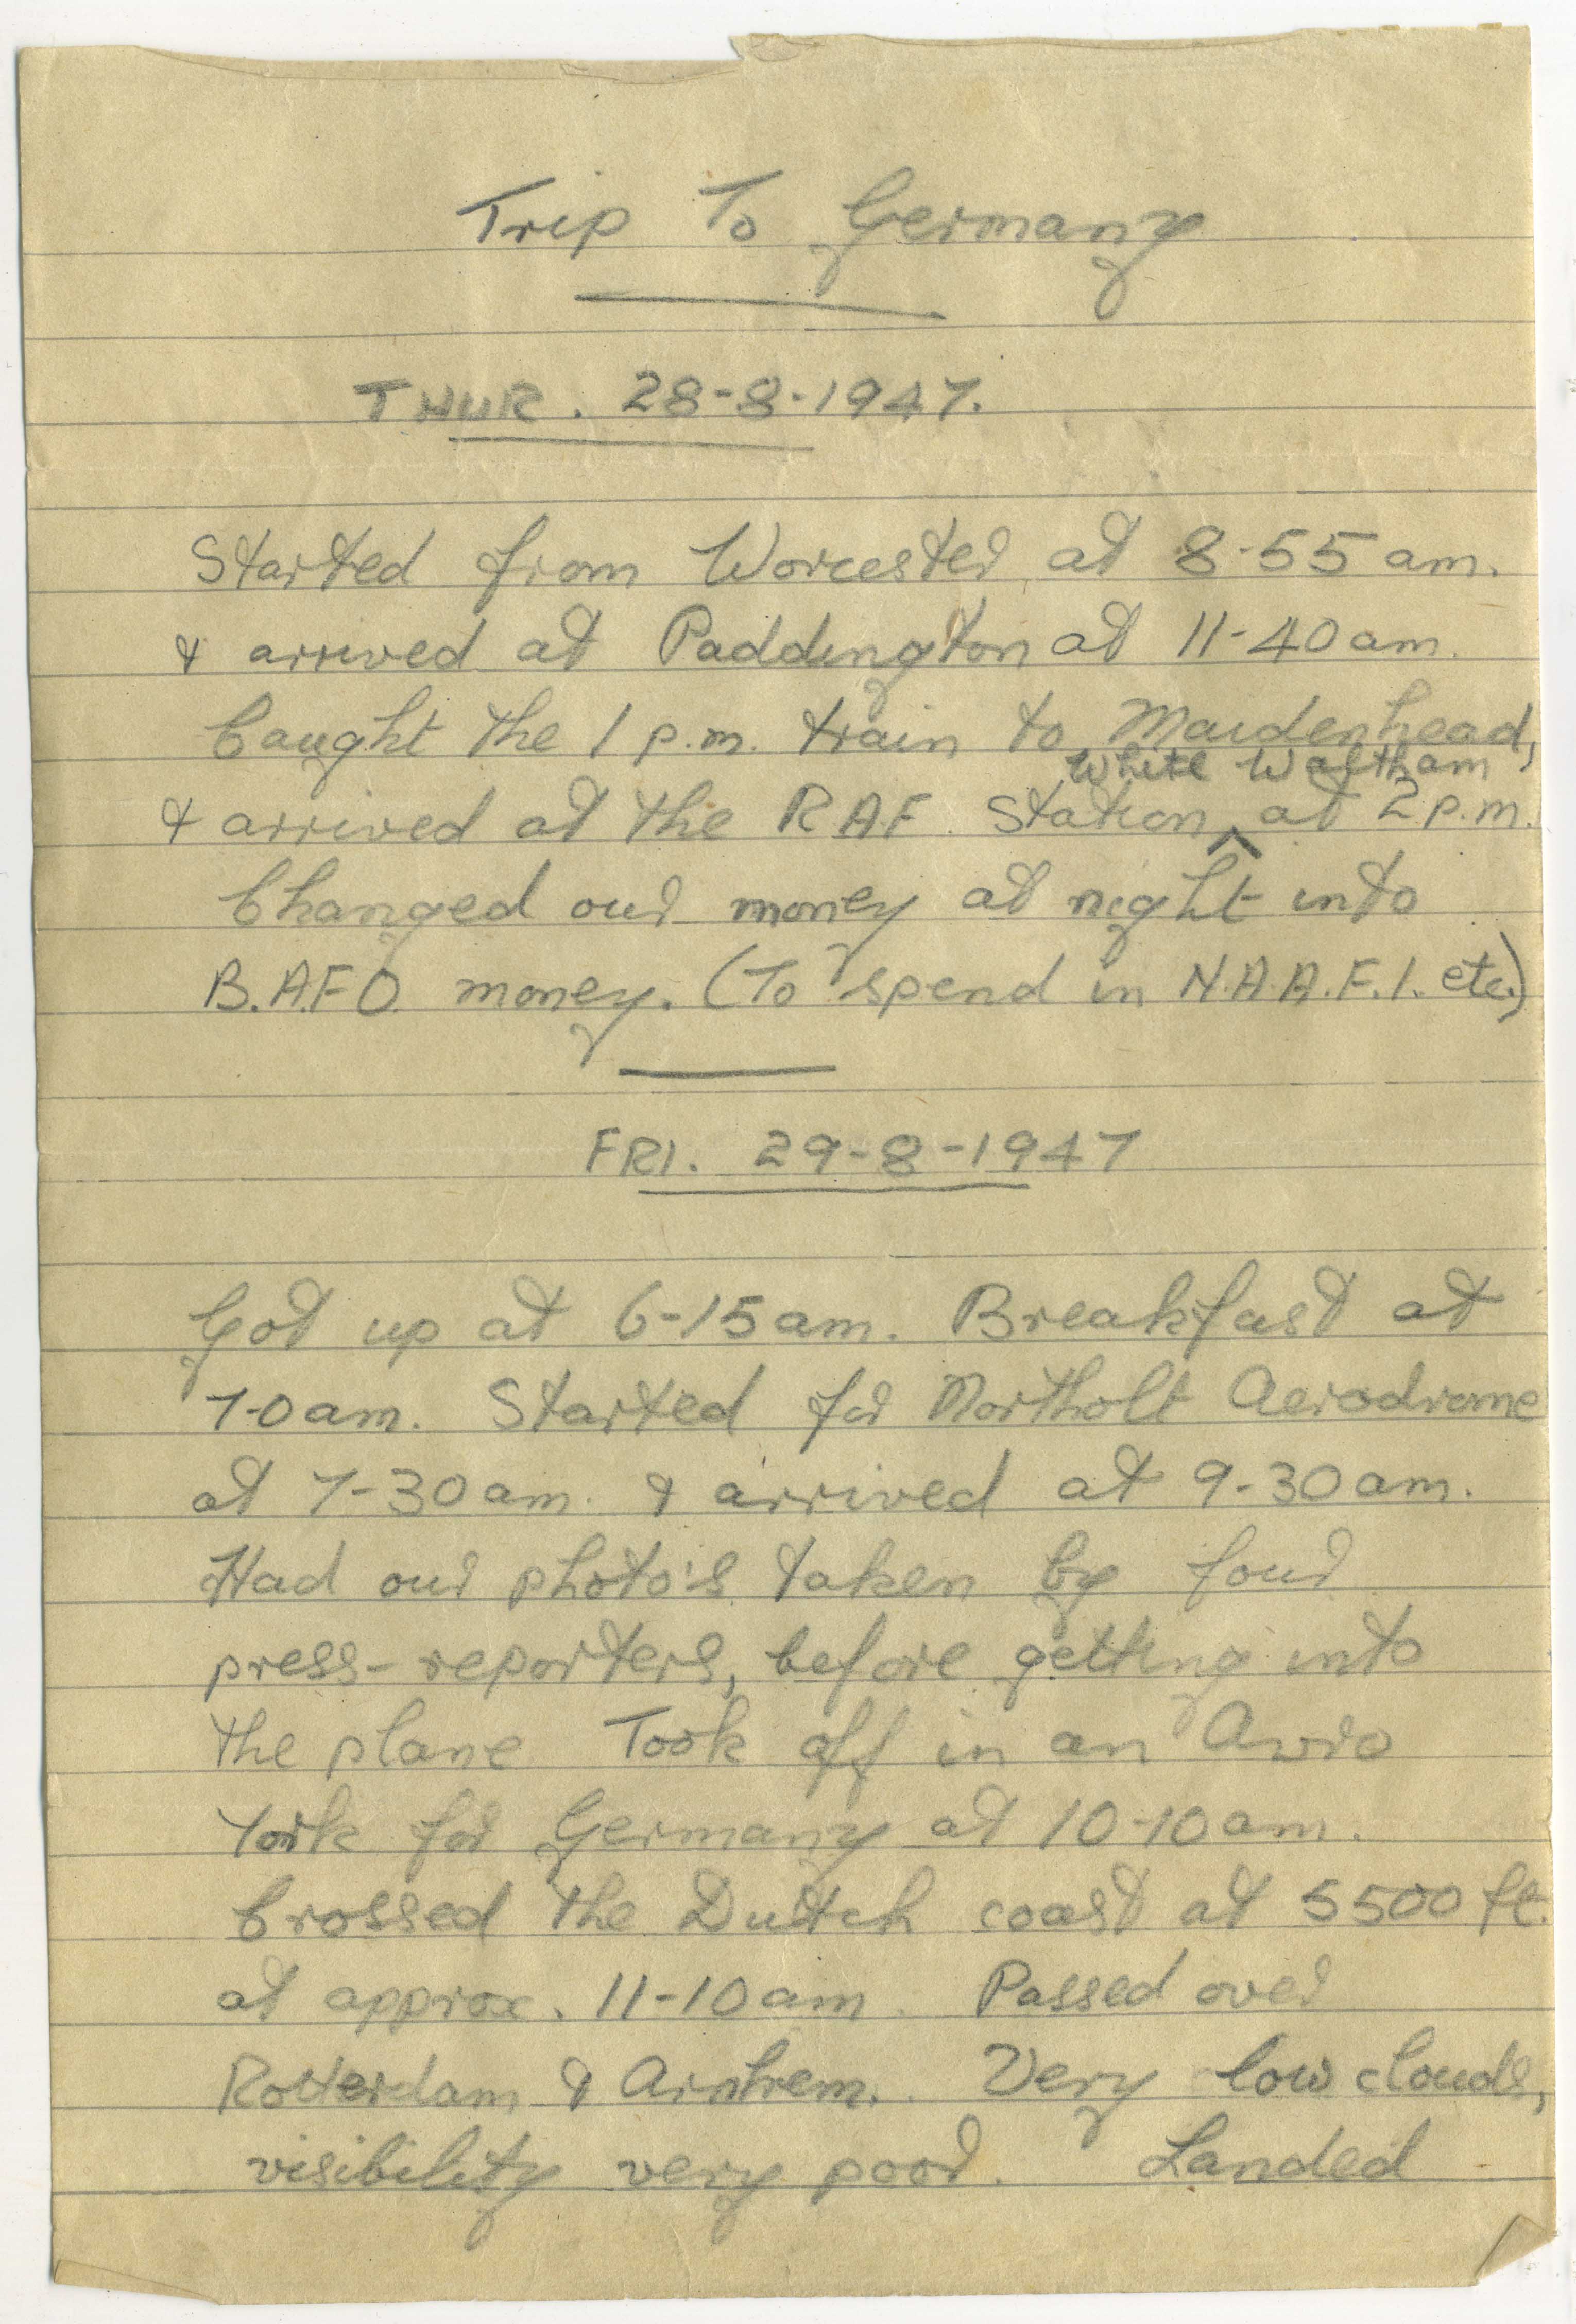 Trip To Germany
THUR. 28-8-1947.
Started from Worcester, at 8-55 am.
& arrived at Paddington at 11-40 am.
Caught the 1 p.m. train to Maidenhead,
White Waltham
& arrived at the R.A.F. Station ^ at 2 p.m.
Changed our money at night into
B.A.F.O. money. (To spend in N.A.A.F.I. etc.)
FRI. 29-8-1947
Got up at 6-15 am. Breakfast at
7-0 am. Started for Northolt Aerodrome
at 7-30 am. & arrived at 9-30 am.
Had our photo's taken by four
press-reporters, before getting into
the plane Took off in an Avro
York for Germany at 10-10 am.
Crossed the Dutch coast at 5500 ft.
at approx. 11-10 am. Passed over
Rotterdam & Arnhem. Very low clouds,
visibility very poor. Landed